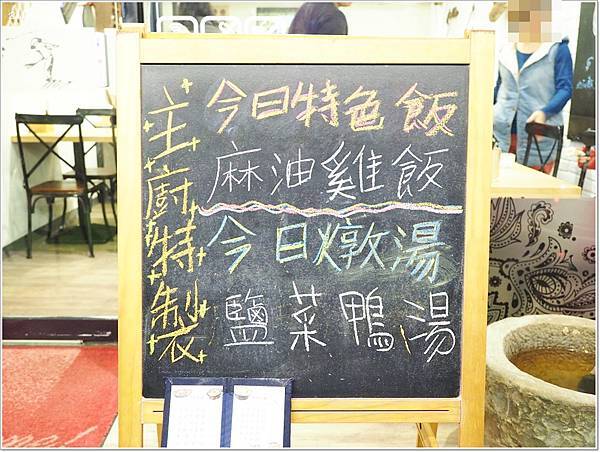 主廚特製
今日特色飯
麻油雞飯
今日燉湯
鹽菜鴨湯